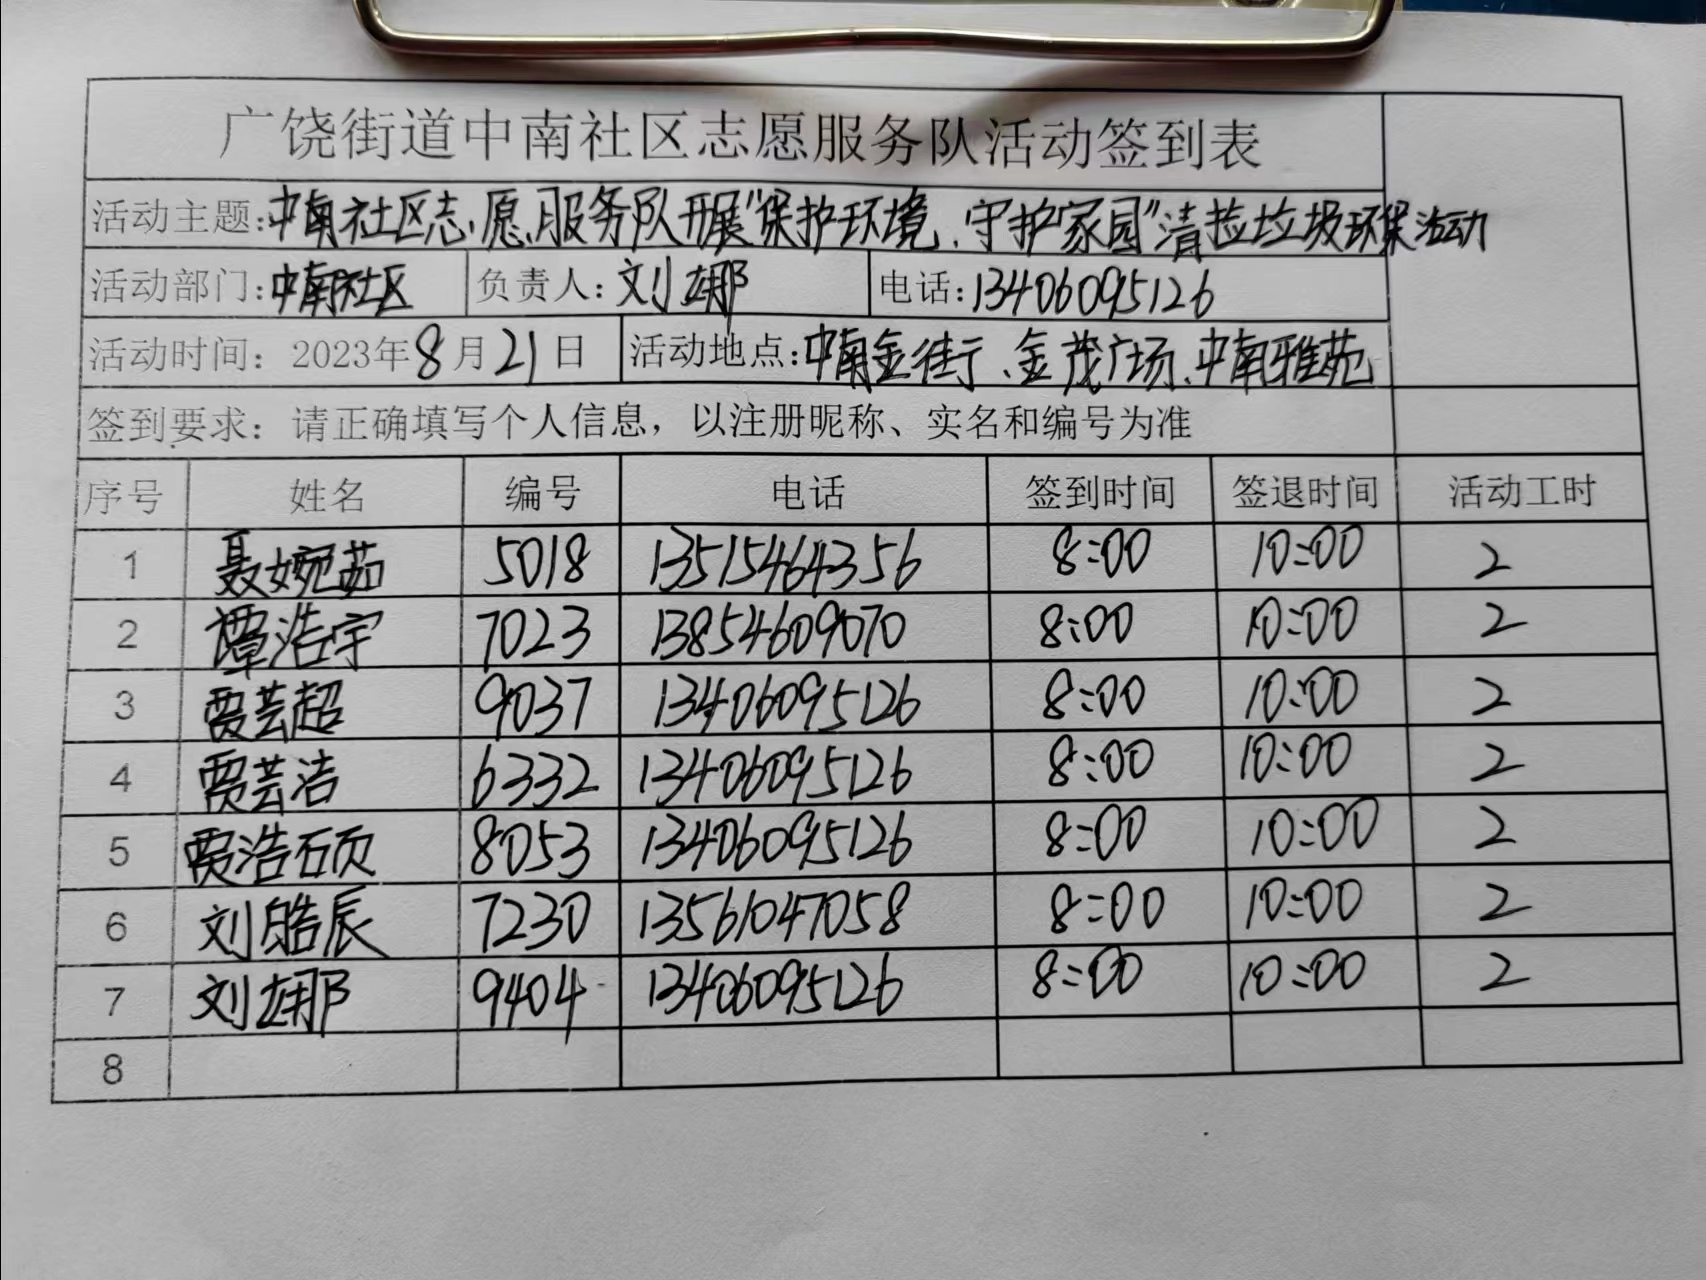 广饶街道中南社区志愿服务队活动签到表
活动主题:中南社区志愿服务队开展"保护环境、守护家园"清捡垃圾环保活动
活动部门:中南社区 负责人:刘娜 电话:13406095126
活动时间:2023年8月21日 活动地点:中南金街、金茂广场、中南雅苑
签到要求:请正确填写个人信息,以注册昵称、实名和编号为准
序号 姓名 编号 电话 签到时间 签退时间 活动工时
1 聂婉茹 5018 13515464356 8:00 10:00 2
2 谭浩宇 7023 13854609070 8:00 10:00 2
3 贾芸超 9037 13406095126 8:00 10:00 2
4 贾芸洁 6332 13406095126 8:00 10:00 2
5 贾浩硕 8053 13406095126 8:00 10:00 2
6 刘皓辰 7230 13561047058 8:00 10:00 2
7 刘娜 9404 13406095126 8:00 10:00 2
8